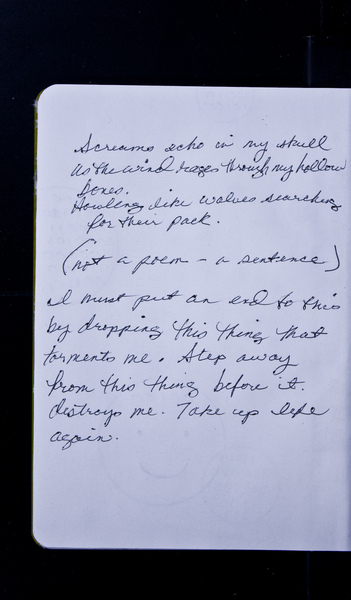 Screams echo in my skull
as the wind rages through my hollow
bones.
Howling like wolves searching
for their pack.
(not a poem - a sentence)
I must put an end to this
by dropping this thing that
torments me. Step away
from this thing before it
destroys me. Take up life
again.